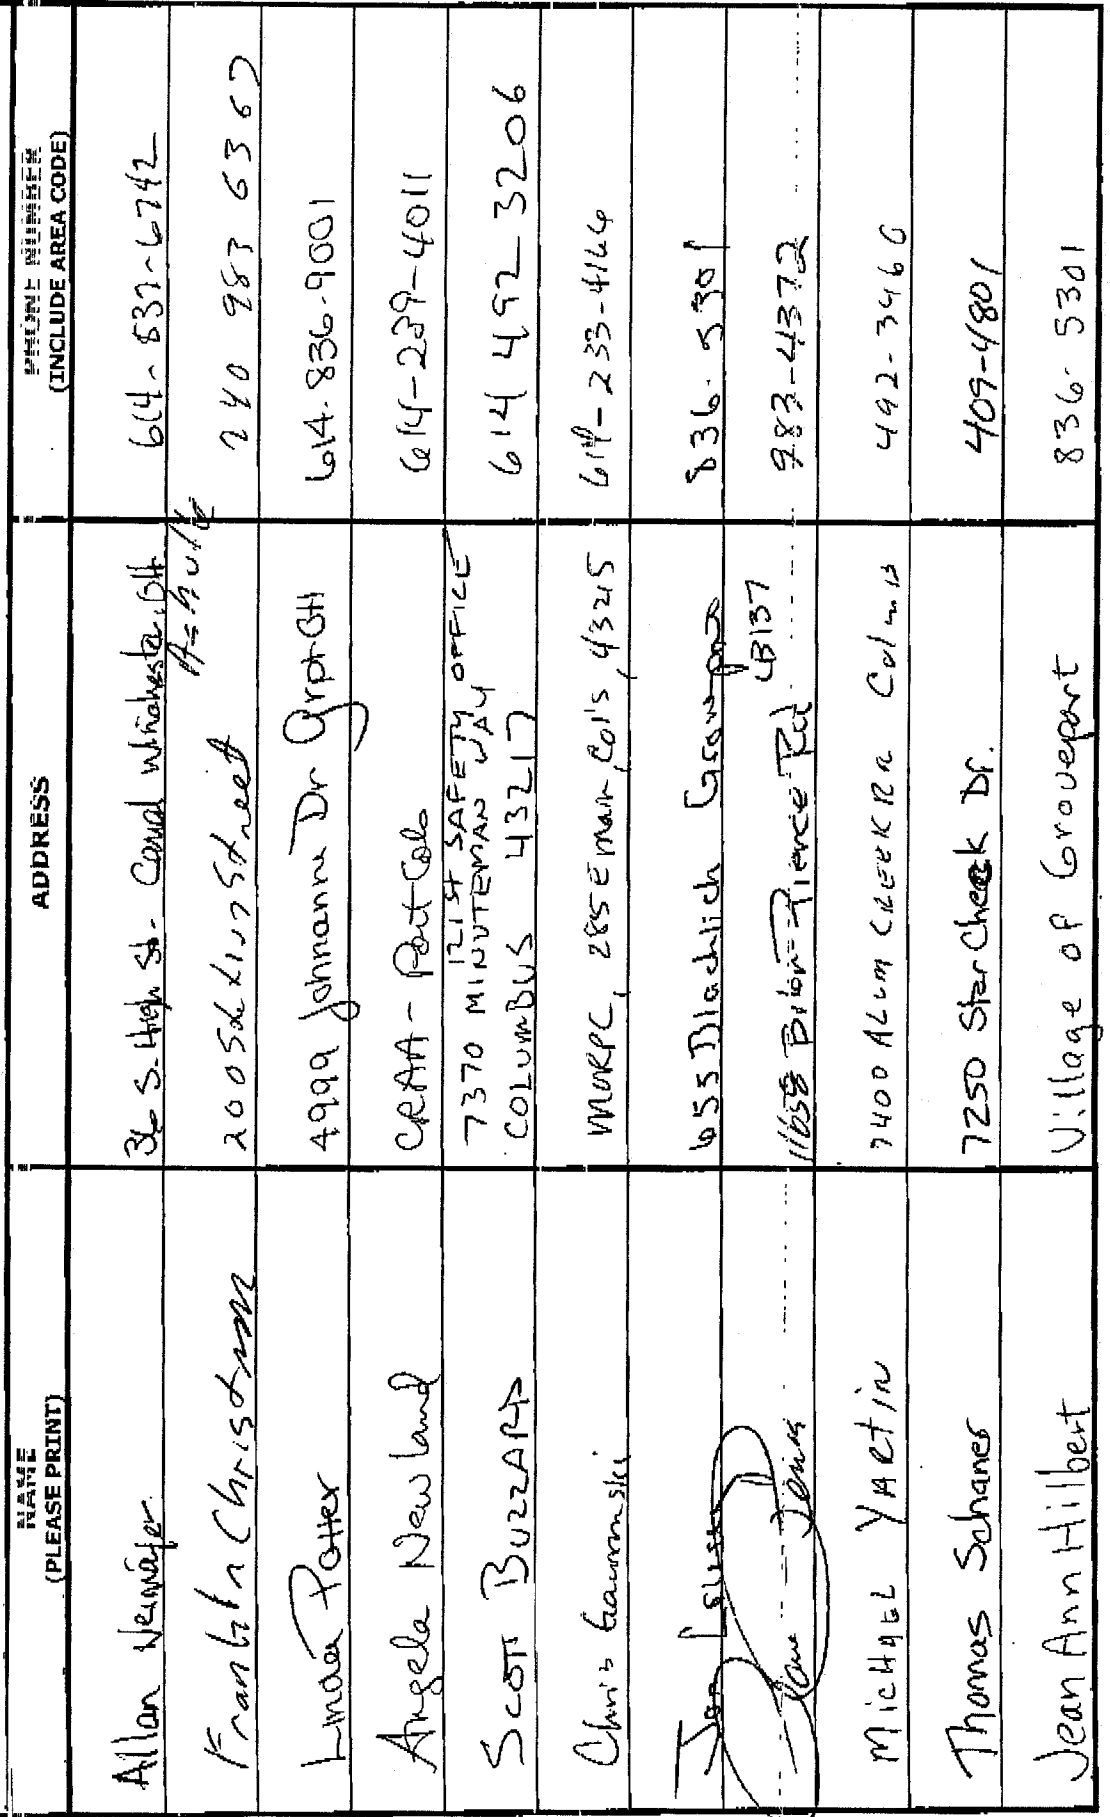 NAME
(PLEASE PRINT)
ADDRESS
PHONE NUMBER
(INCLUDE AREA CODE)
Allan
36 S. High St. Canal Winchester, OH
614-837-6742
Franklin Christman
200 Street
740 983 6367
Linda Potter
4999 Johanne Dr Grpt OH
614-836-9001
Angela Newland
CRAA - Port Cols
614-239-4011
SCOTT BUZZARD
121st SAFETY OFFICE
7370 MINUTEMAN WAY
COLUMBUS 43217
614 492 3206
Chris
MORPC, 285 E Main, Col's, 43215
614-233-4144
655 Blacklick
836-5301
Jane Jones
Rd.
983-4372
MICHAEL YARTIN
7400 ALUM CREEK
492-3460
Thomas Schaner
7250 Star Check Dr.
409-4801
Jean Ann Hilbert
Village of Groveport
836-5301